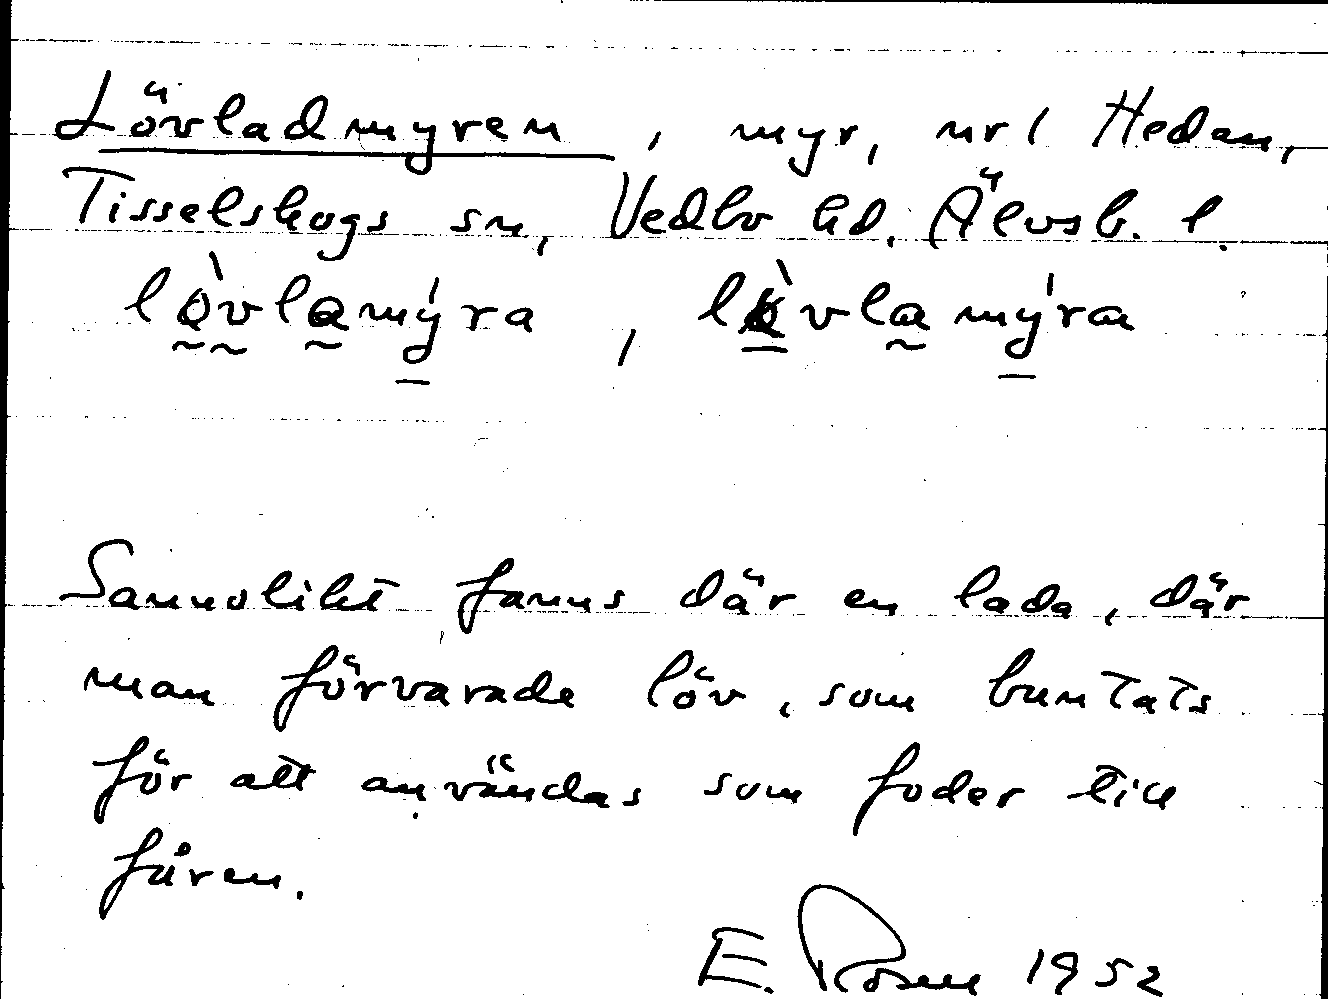 Lövladmyren, myr, nr 1 Hedan,
Tisselskogs sn, Vedbo hd. Älvsb. l.
lò̰̖v̰lḁmý̠ra, lvlamýra
Sannolikt fanns där en lada, där
man förvarade löv, som buntats
för att användas som foder till
fåren.
E. Rosen 1952